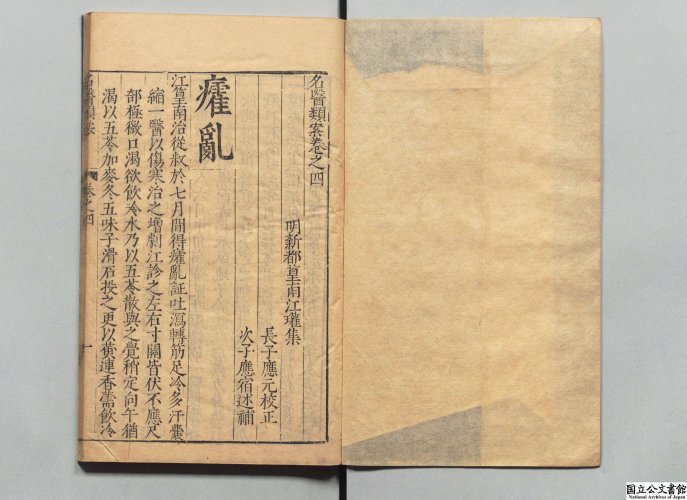 名醫類案卷之四
明新都篁南江瓘集
長子應元校正
次子應宿述補
癨亂
江篁南治從叔於七月間得癨亂証吐瀉轉筋足冷多汗囊
縮一醫以傷寒治之增劇江診之左右寸關皆伏不應尺
部極微口渴欲飲冷水乃以五苓散與之覺稍定向午猶
渴以五苓加麥冬五味子滑石投之更以黄連香薷飲冷
名醫類案
卷之四
一
国立公文書館
National Archives of Japan